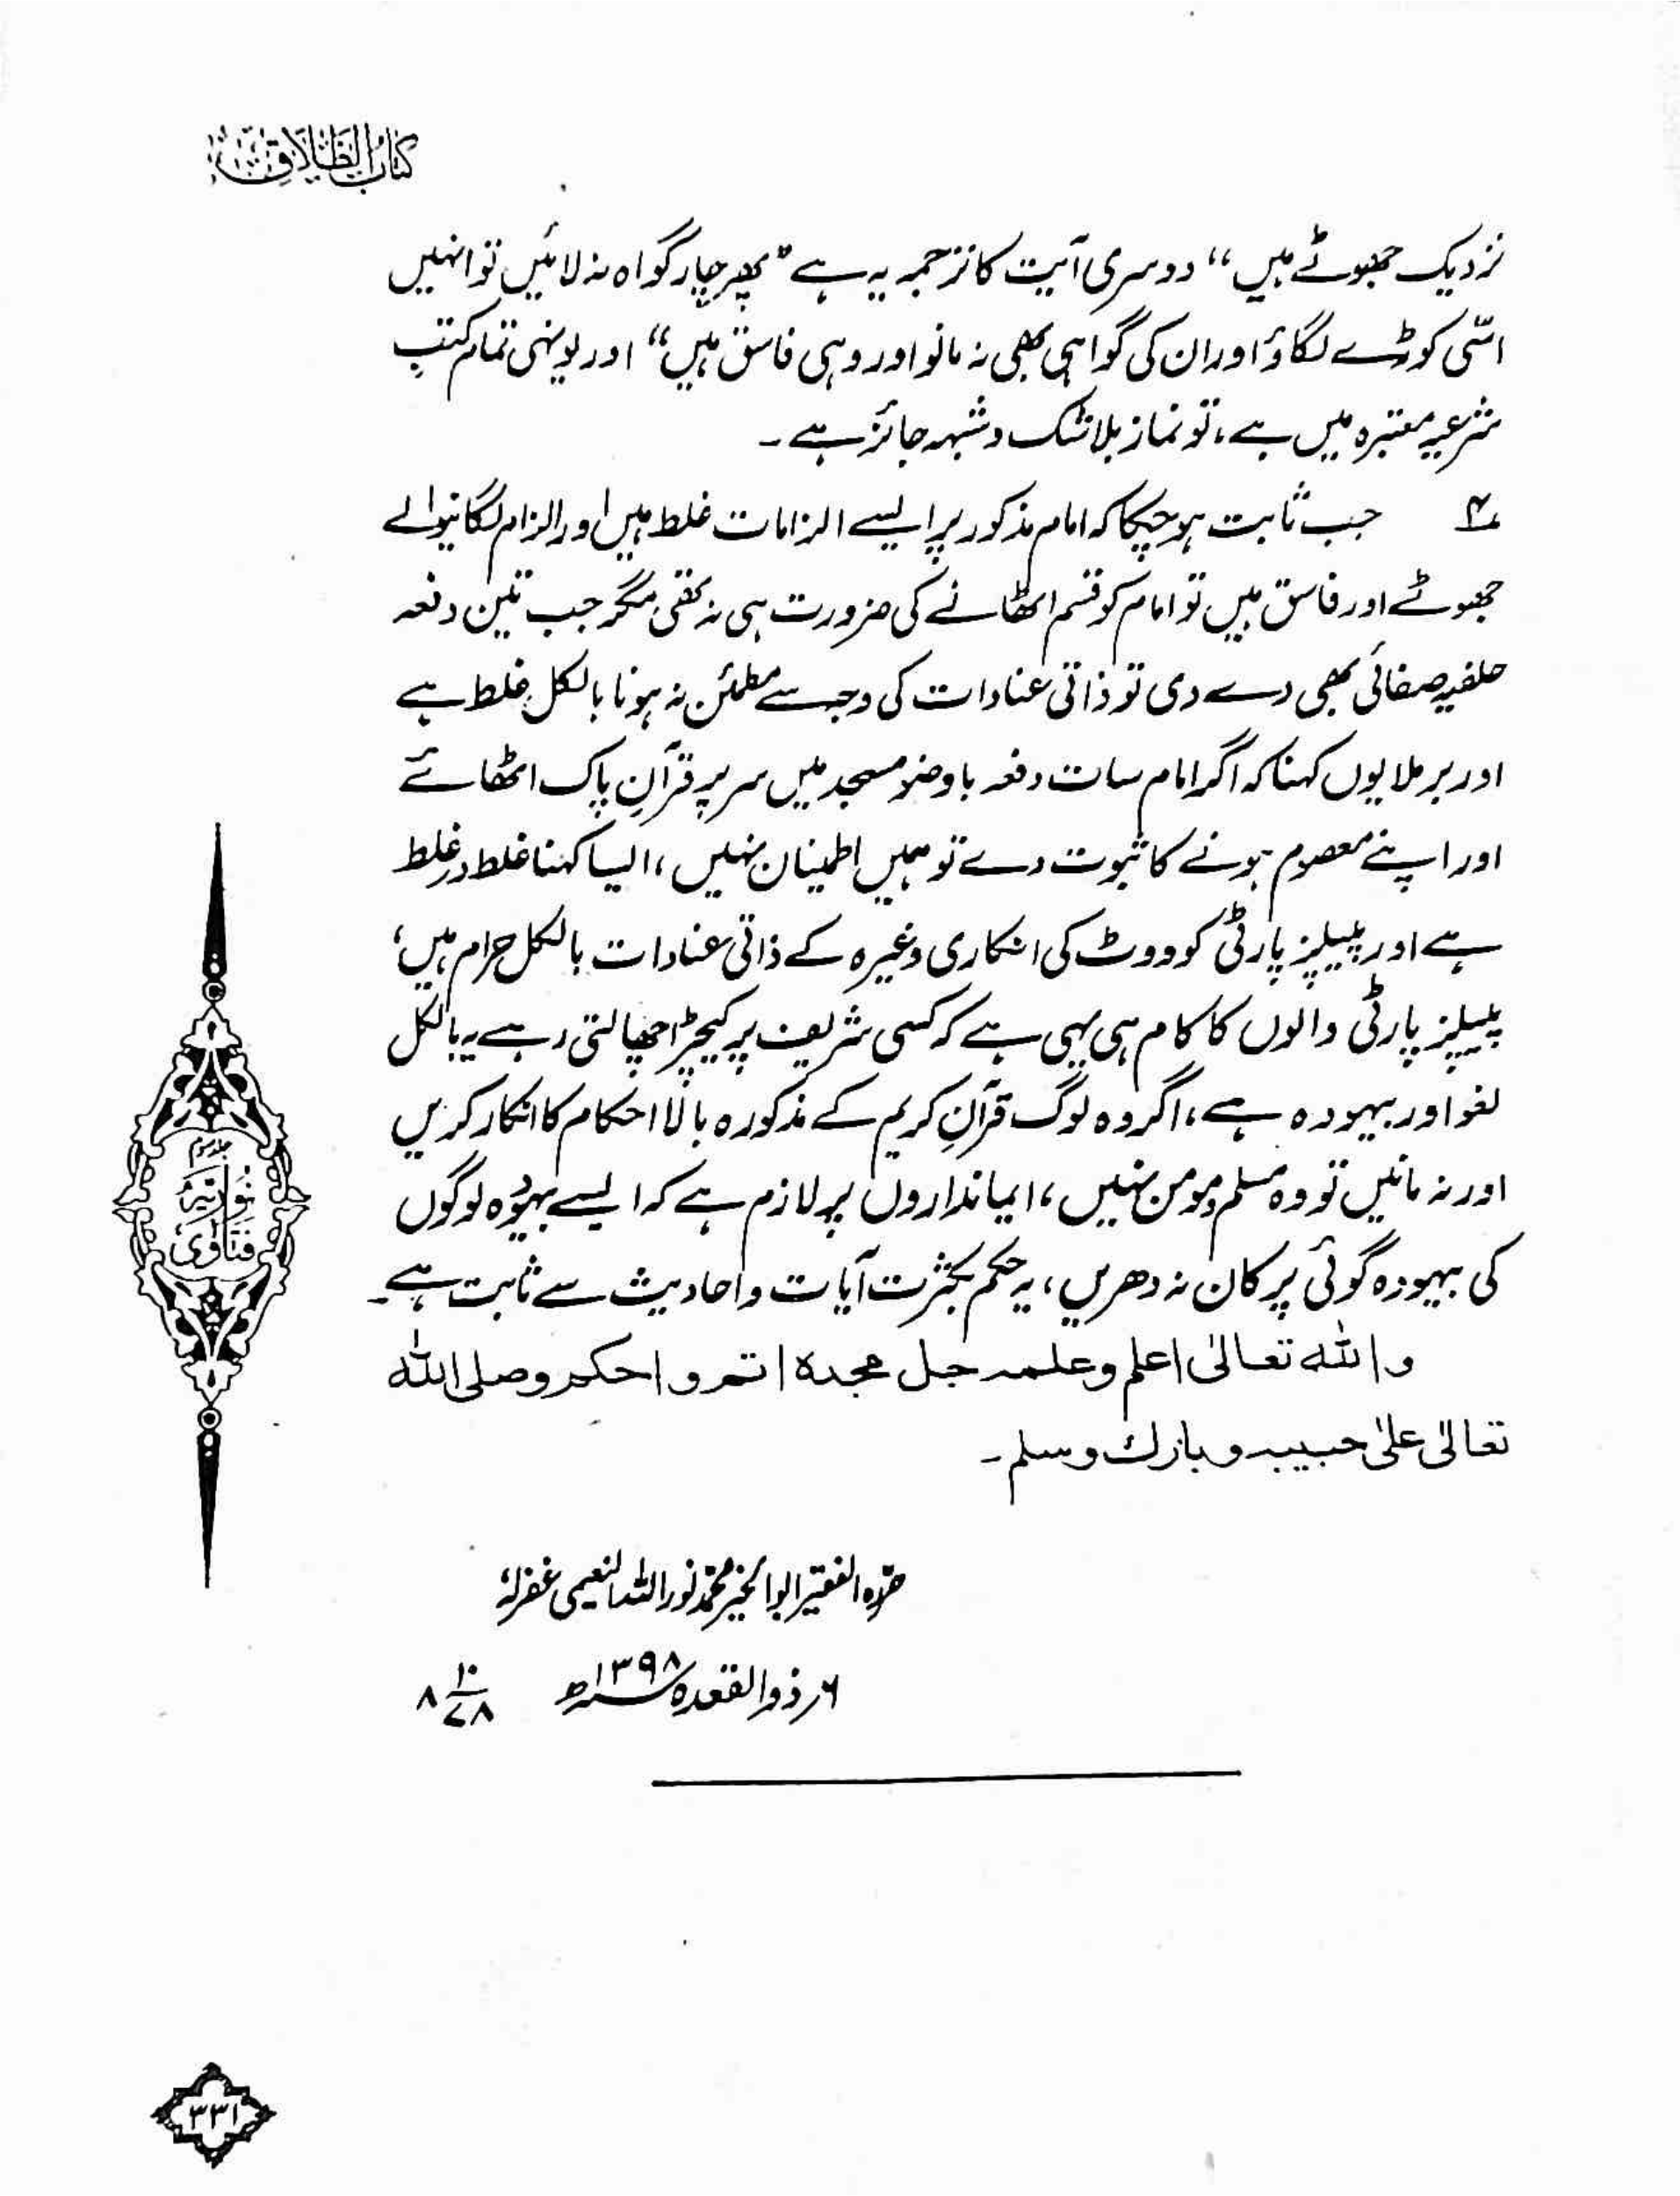 کتاب الطلاق
نزدیک جھوٹے ہیں“ دوسری آیت کا ترجمہ یہ ہے ”پھر چار گواہ نہ لائیں تو انہیں
اسّی کوڑے لگاؤ اور ان کی گواہی کبھی نہ مانو اور وہی فاسق ہیں“ اور یونہی تمام کتبِ
شرعیہ معتبرہ میں ہے، تو نماز بلا شک و شبہہ جائز ہے۔
۴ جب ثابت ہو چکا کہ امام مذکور پر ایسے الزامات غلط ہیں اور الزام لگانیوالے
جھوٹے اور فاسق ہیں تو امام کو قسم اٹھانے کی ضرورت ہی نہ تھی مگر جب تین دفعہ
حلفیہ صفائی بھی دے دی تو ذاتی عنادات کی وجہ سے مطمئن نہ ہونا بالکل غلط ہے
اور برملا یوں کہنا کہ اگر امام سات دفعہ باوضو مسجد میں سر پر قرآنِ پاک اٹھائے
اور اپنے معصوم ہونے کا ثبوت دے تو ہمیں اطمینان نہیں، ایسا کہنا غلط در غلط
ہے اور پیپلز پارٹی کو ووٹ کی انکاری وغیرہ کے ذاتی عنادات بالکل حرام ہیں،
پیپلز پارٹی والوں کا کام ہی یہی ہے کہ کسی شریف پر کیچڑ اچھالتی رہے یہ بالکل
لغو اور بیہودہ ہے، اگر وہ لوگ قرآنِ کریم کے مذکورہ بالا احکام کا انکار کریں
اور نہ مانیں تو وہ مسلم و مومن نہیں، ایمانداروں پر لازم ہے کہ ایسے بیہودہ لوگوں
کی بیہودہ گوئی پر کان نہ دھریں، یہ حکم بکثرت آیات و احادیث سے ثابت ہے۔
واللہ تعالیٰ اعلم وعلمہ جل مجدہ اتم واحکم وصلی اللہ
تعالیٰ علیٰ حبیبہ وبارک وسلم۔
حرّرہ الفقیر ابوالخیر محمد نور اللہ النعیمی غفرلہٗ
۶؍ذوالقعدہ ۱۳۹۸ھ ۸ ۱۰ ۷۸
جلد سوم
نوریہ
فتاویٰ
۳۳۱